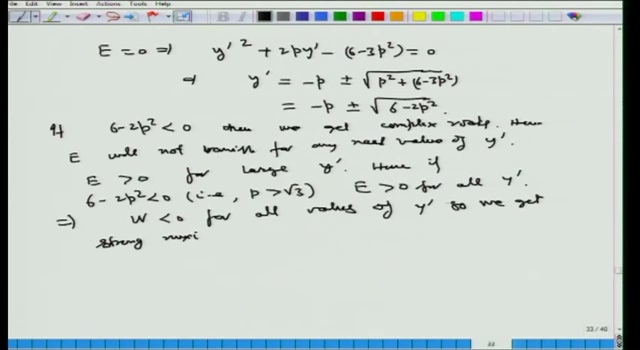 Edit View Insert Actions Tools Help
E = 0 ⇒ y'² + 2py' - (6-3p²) = 0
⇒ y' = -p ± √(p² + (6-3p²))
= -p ± √(6-2p²).
If 6-2p² < 0 then we get complex roots. Hence
E will not vanish for any real value of y'.
E > 0 for large y'. Hence if
6-2p² < 0 (i.e, p > √3) E > 0 for all y'.
⇒ W < 0 for all values of y' so we get
strong maxi
33 / 40
33